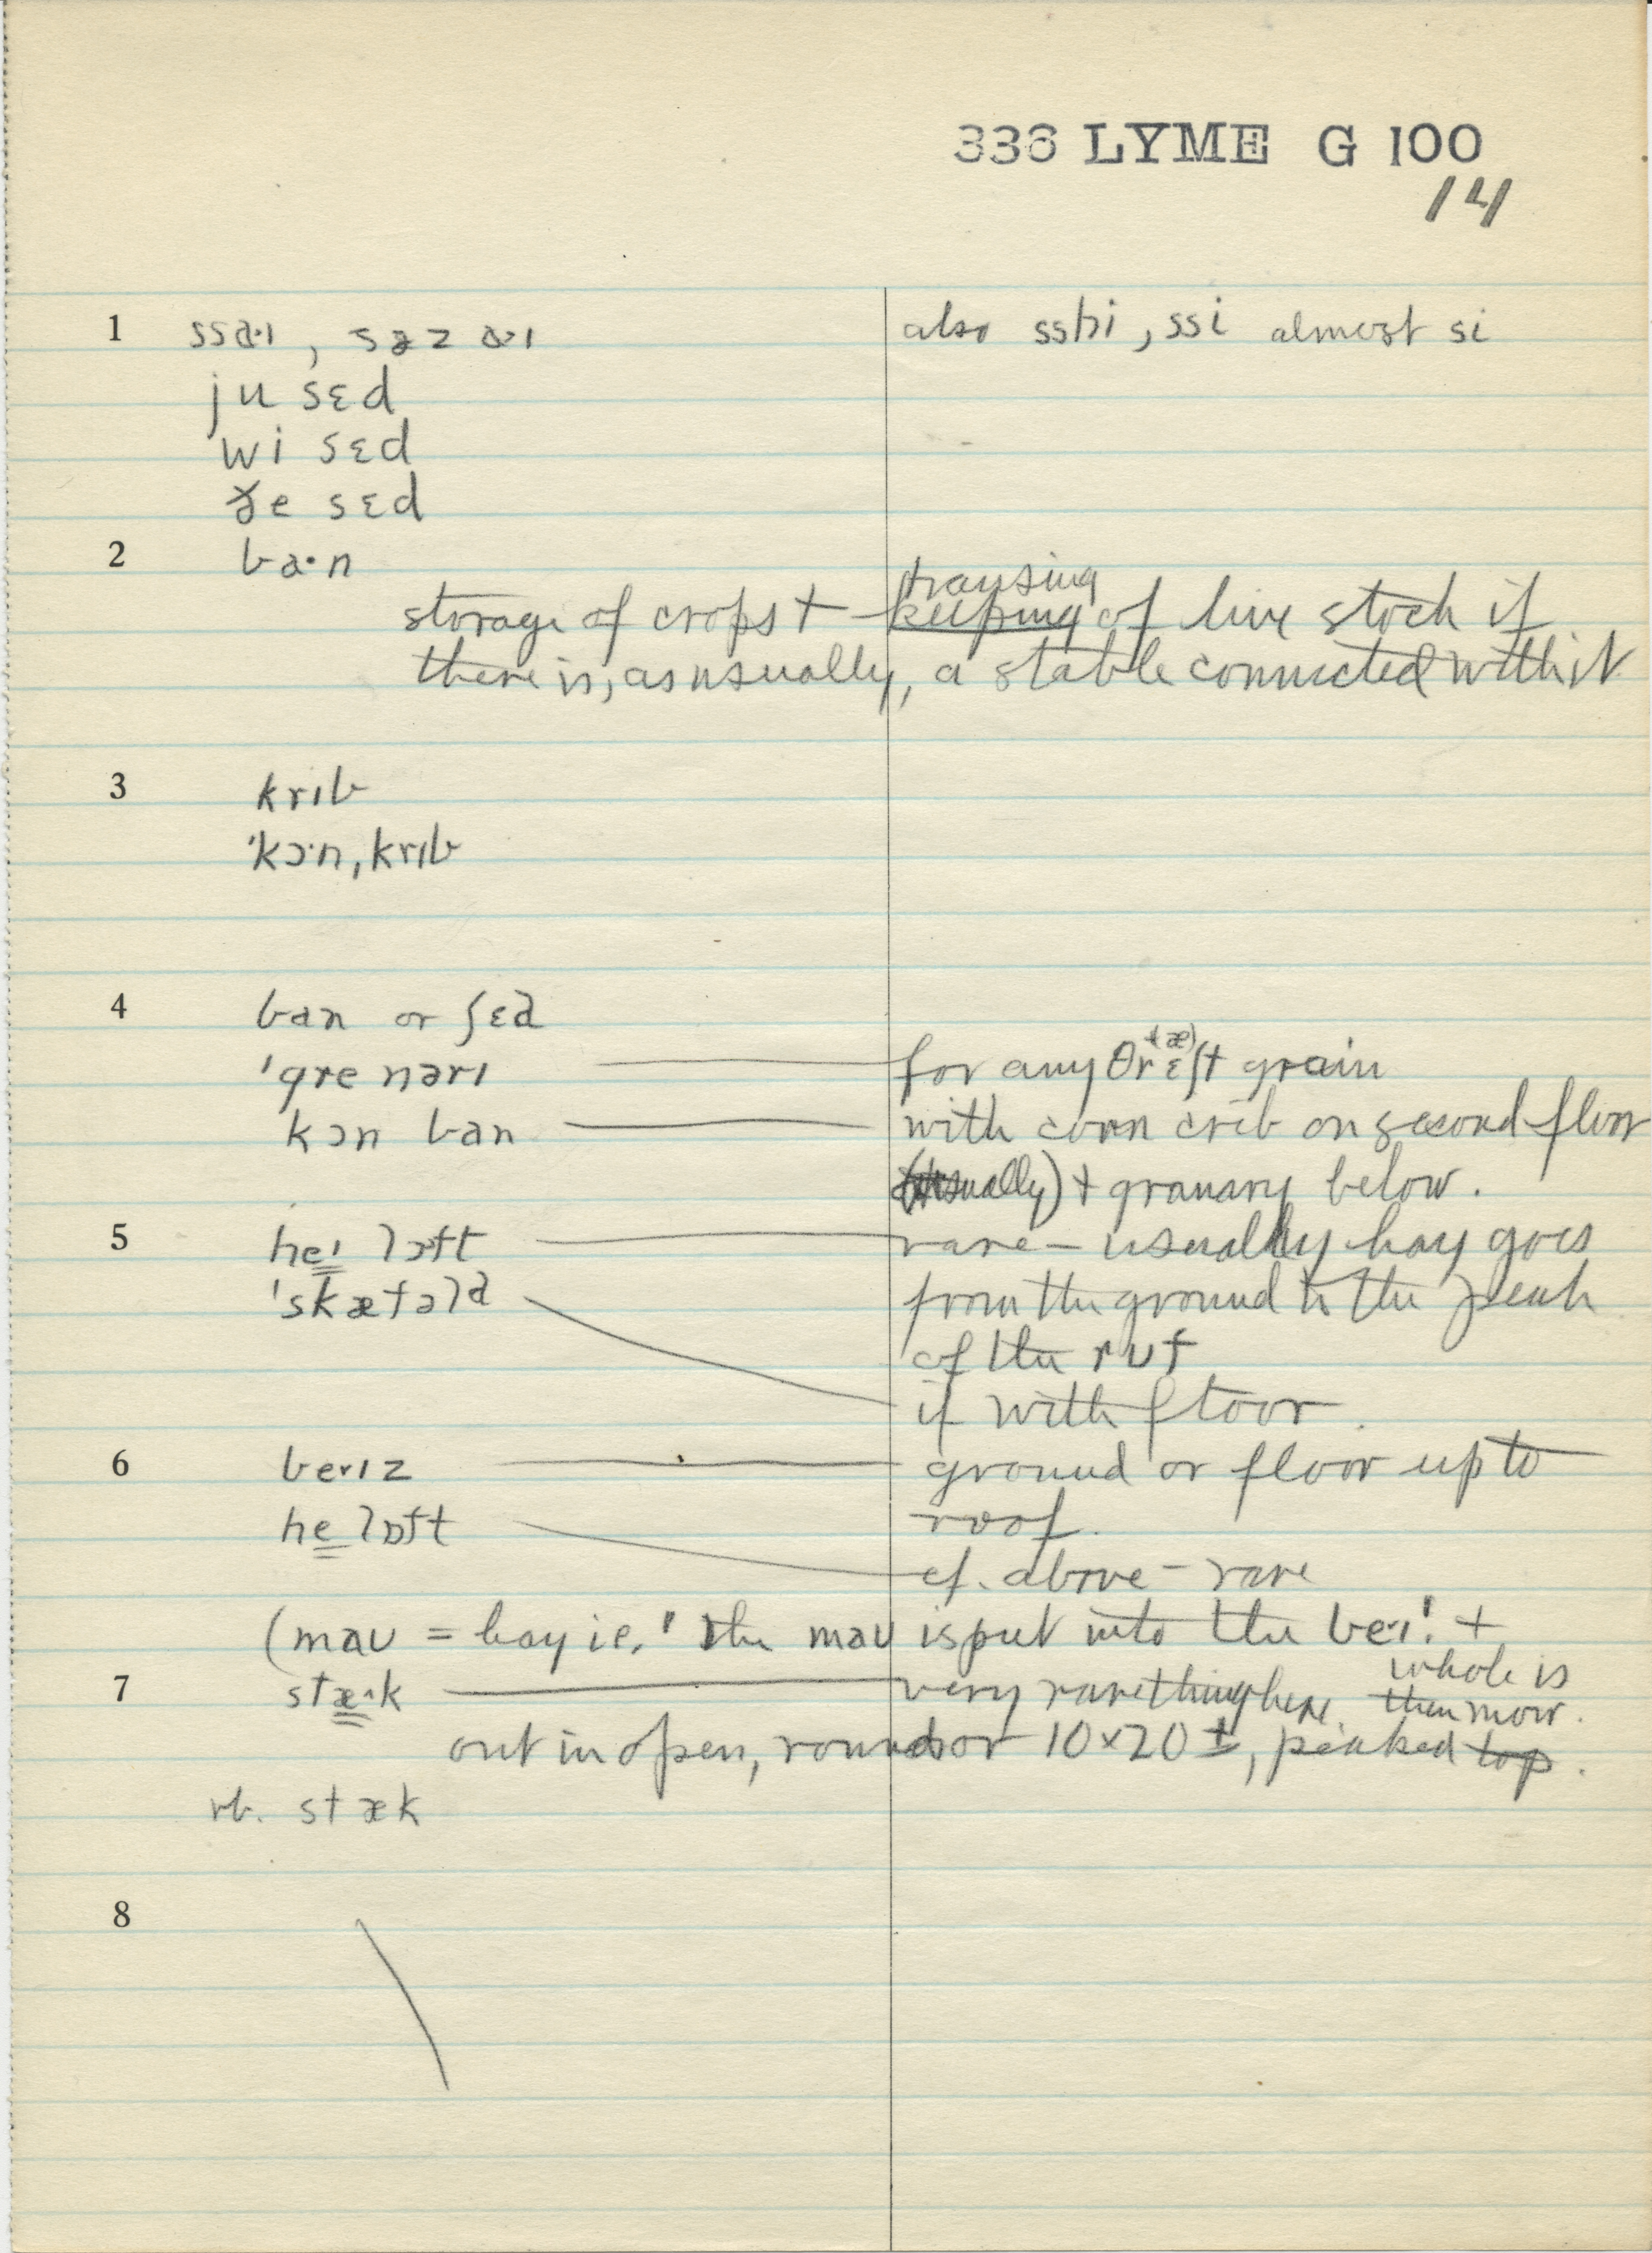 336 LYME G 100
14
1 ssa·ı, səz a·ı also sshi, ssi almost si
ju sɛd
wi sɛd
ðe sɛd
2 ba·n
housing
storage of crops + keeping of live stock if
there is, as usually, a stable connected with it
3 krɪb
'kɔ·n, krɪb
4 ban or ʃɛd
'gre nərɪ for any θrɛʃt (æ) grain
kɔn ban with corn crib on second floor
(usually) + granary below.
5 heɪ lɔft rare – usually hay goes
'skæfəld from the ground to the peak
of the rʊf
if with floor.
6 be·ɪz ground or floor up to
roof.
he lɒft cf. above – rare
(maʊ = hay i.e. 'the maʊ is put into the be·ɪ' +
whole is
7 stæ·k very rare thing here. then mow.
out in open, round or 10×20 ±, peaked top.
stæk
8